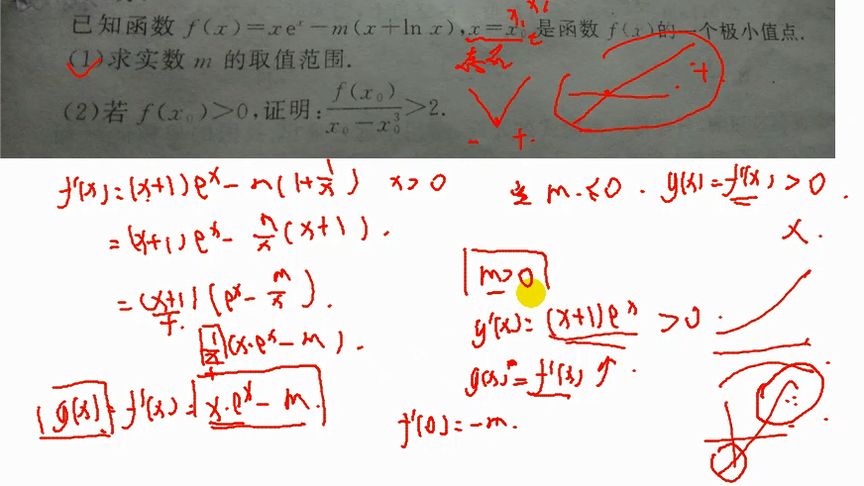 已知函数 f(x)=xeˣ-m(x+ln x),x=x₀是函数 f(x)的一个极小值点.
(1)求实数 m 的取值范围.
(2)若 f(x₀)>0,证明:f(x₀)/(x₀-x₀³)>2.
- +.
+
f'(x)=(x+1)eˣ-m(1+1/x) x>0
=(x+1)eˣ-m/x(x+1).
=(x+1)(eˣ-m/x).
+.
1/x(x·eˣ-m).
+
g(x)=f'(x)=x·eˣ-m.
当 m≤0. g(x)=f'(x)>0.
x.
m>0
g'(x)=(x+1)eˣ>0.
g(x)=f'(x)↑.
f'(0)=-m.